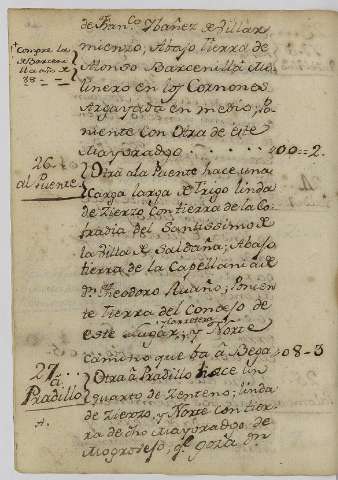 de Fran.co Ybañez de Villar
mienzo; Abajo tierra de
Alonso Barcenilla Mo
linero en los Cornones
Argayada en medio; Po
niente Con Otra de este
Mayorazgo . . . . . . 00=2.
Compre la
de Barceni
lla año de
88
26
al Puente
Otra ala Puente hace una
Carga larga de Trigo linda
de Zierzo Con tierra de la Co
fradia del Santissimo de
la Villa de Saldaña; Abajo
tierra de la Capellania de
Dn. Theodoro Ruaño; Ponien
te Tierra del Concejo de
este Lugar; y Norte
Carretera
camino que ba â Bega 08-3
27
â
Pradillo
Otra â Pradillo hace un
quarto de Zenteno; linda
de Zierzo, y Norte con tier
ra de dho Mayorazgo de
Mogrovejo, qe. goza Dn